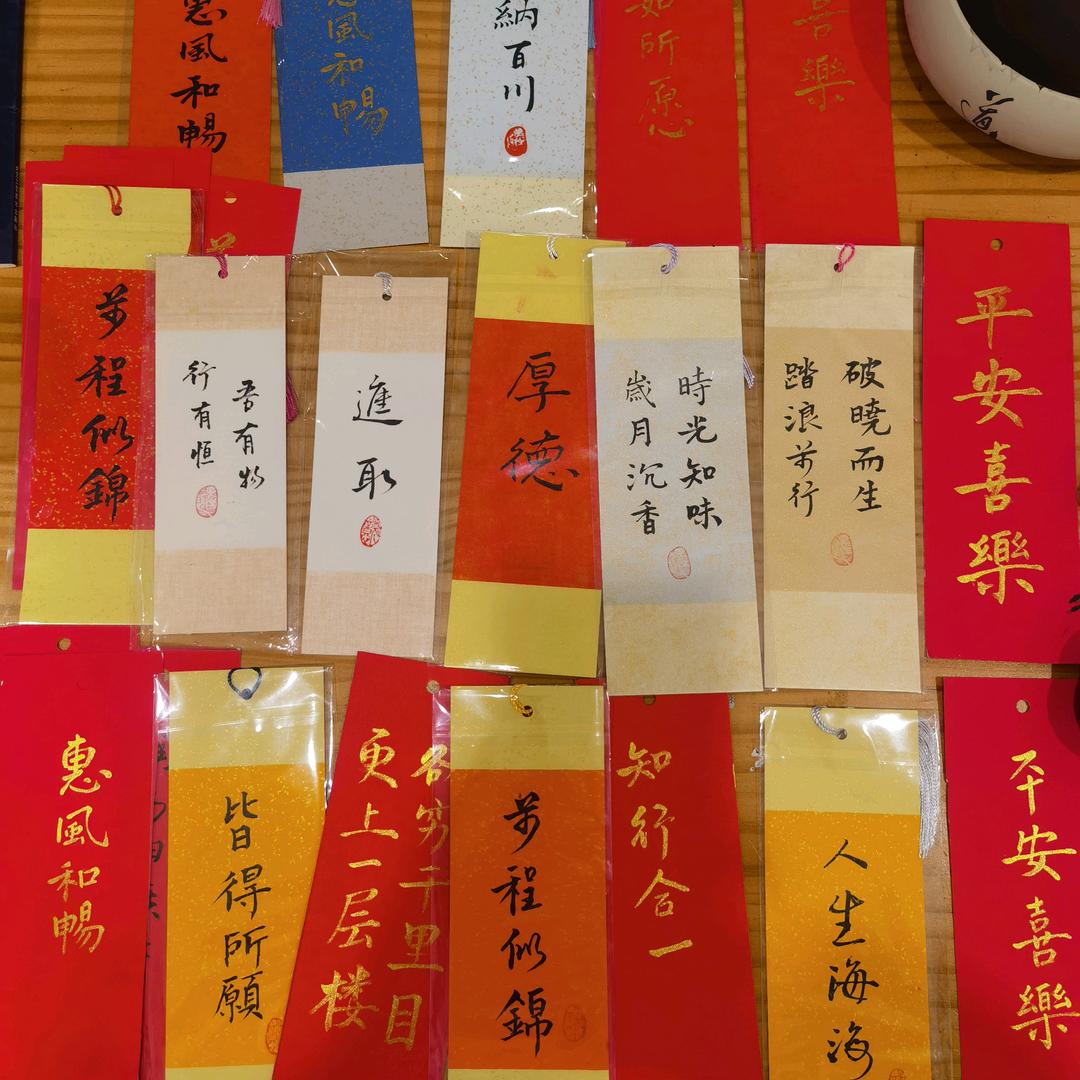 惠風和暢
風和暢
納百川
如所愿
喜樂
前程似錦
吾有物
行有恒
進取
厚德
時光知味
歲月沉香
破曉而生
踏浪前行
平安喜樂
惠風和暢
皆得所願
欲穷千里目
更上一层楼
前程似錦
知行合一
人生海海
平安喜樂